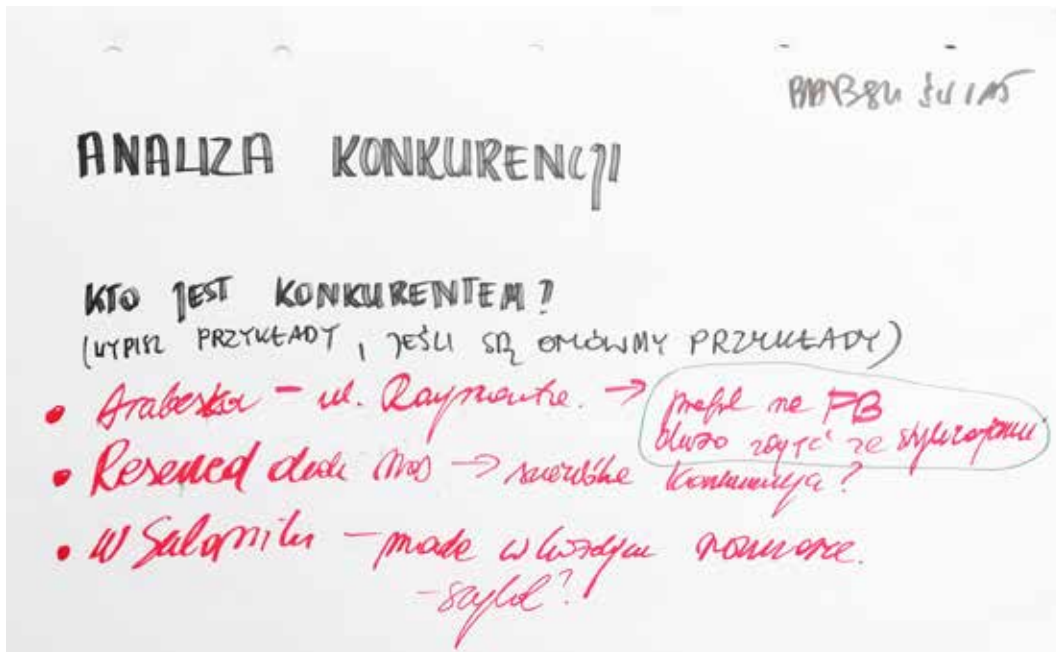 BABSKI ŚWIAT
ANALIZA KONKURENCJI
KTO JEST KONKURENTEM?
(WYPISZ PRZYKŁADY, JEŚLI SĄ OMÓWMY PRZYKŁADY)
• Arabeska – ul. Reymonta. → profil na FB
dużo zdjęć ze stylizacjami
• Reserved →
• W Saloniku – moda w każdym rozmiarze.
– szyld?